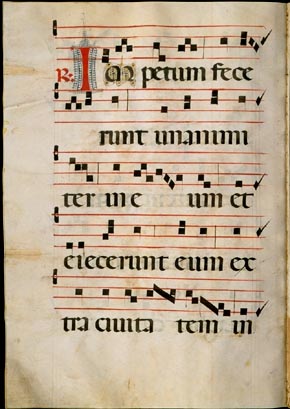 R. Impetum fece
runt unanimi
ter in e um et
eiecerunt eum ex
tra ciuita tem in